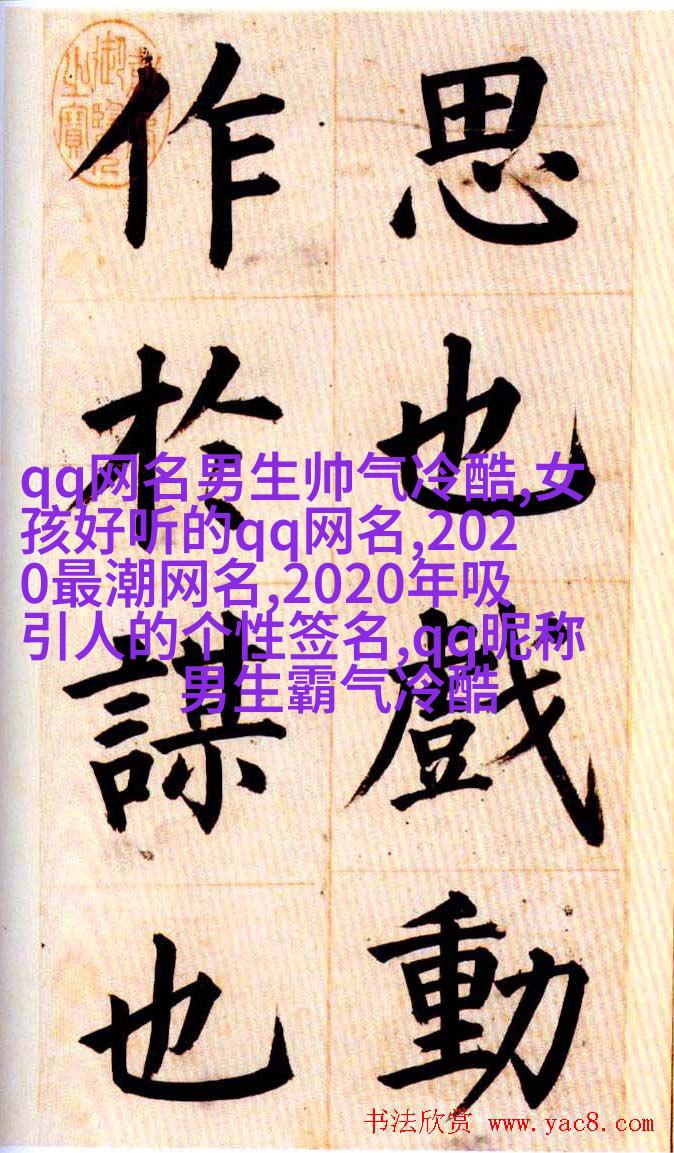 思也戲動
作於謀也
qq网名男生帅气冷酷,女
孩好听的qq网名,202
0最潮网名,2020年吸
引人的个性签名,qq昵称
男生霸气冷酷
书法欣赏 www.yac8.com